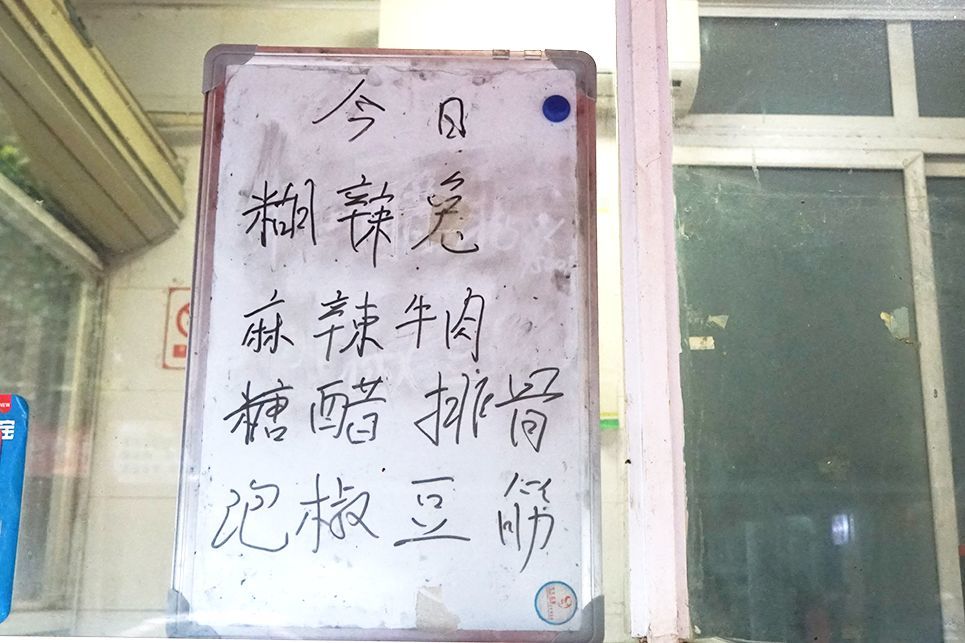 今日
糊辣兔
麻辣牛肉
糖醋排骨
泡椒豆筋
NEW